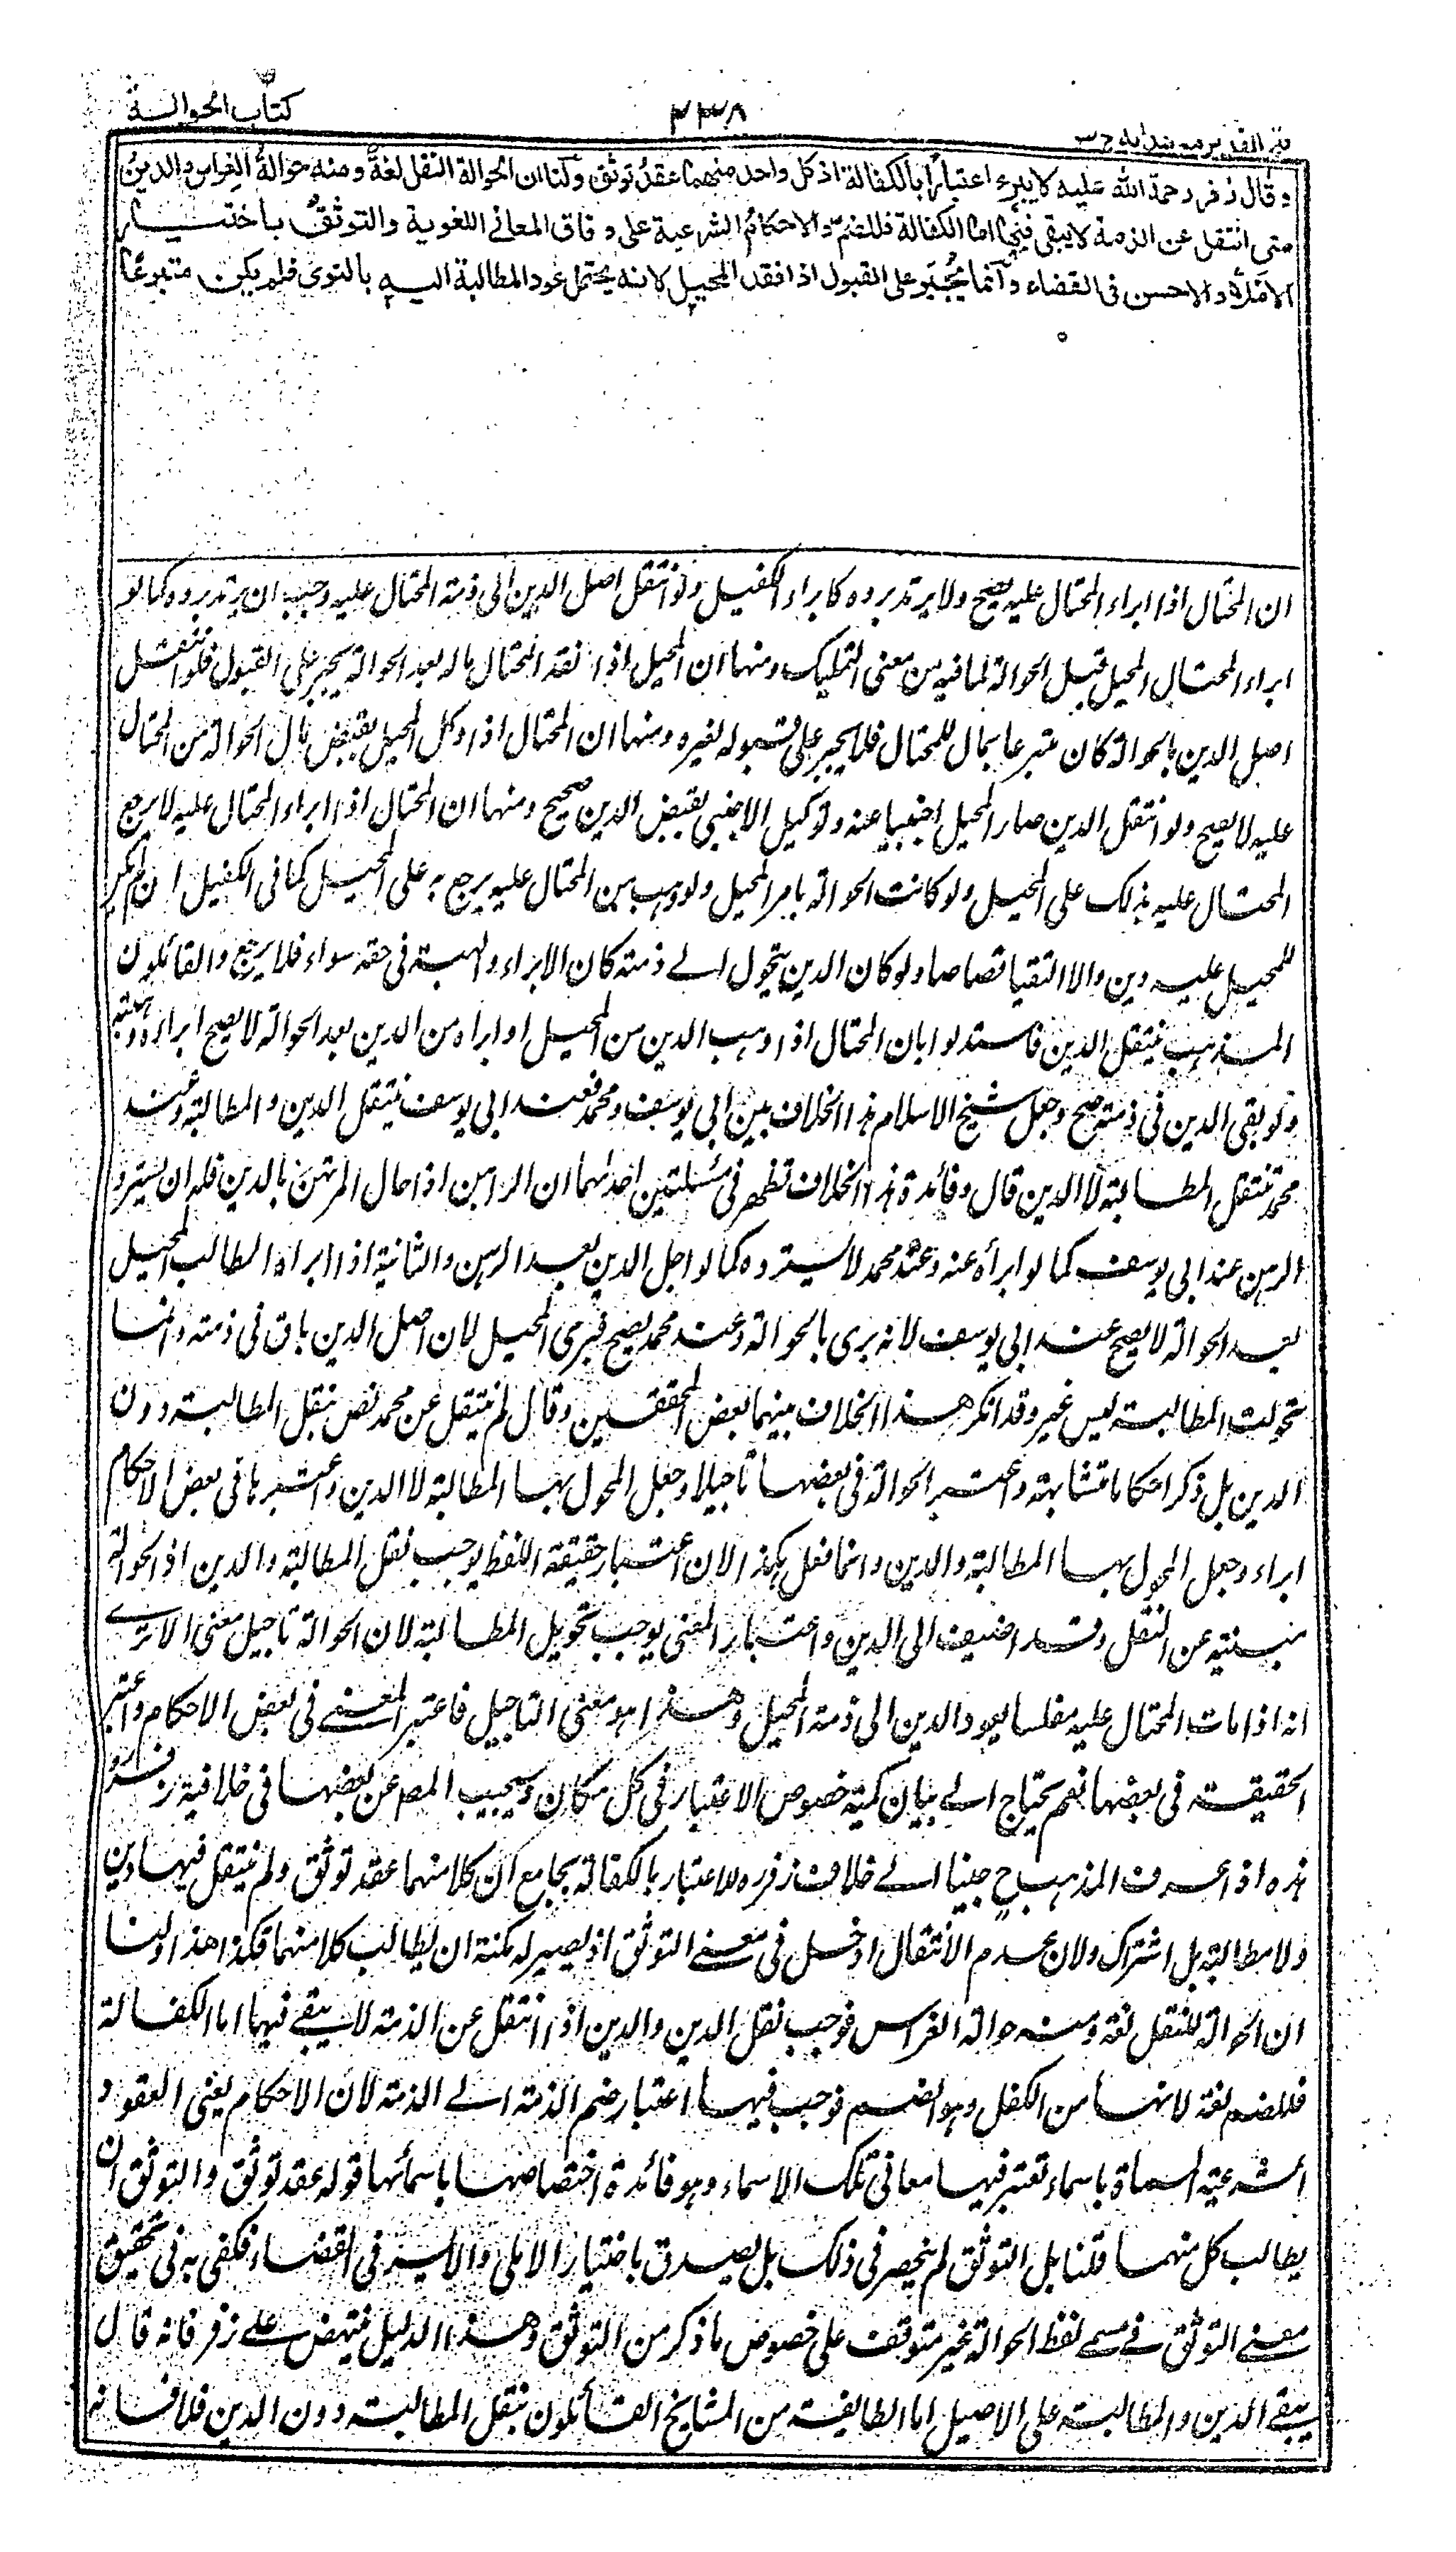 فتح القدير مع هدايه ج ٣
٣٣٨
كتاب الحوالة
وقال زفر رحمة الله عليه لا يبرء اعتبارًا بالكفالة اذ كل واحد منهما عقدُ توثق ولنا ان الحوالة النقل لغةً ومنه حوالةُ الغِراس والدينُ
متى انتقل عن الذمة لا يبقى فيها اما الكفالة فللضمّ والاحكامُ الشرعية على وفاق المعاني اللغوية والتوثقُ باختيار
الاملأ والاحسن في القضاء وانما يُجْبَر على القبول اذا نقد المحيل لانه يحتمل عود المطالبة اليه بالتوى فلم يكن متبرعًا
ان المحتال اذا ابراء المحتال عليه يصح ولا يرتد برده كابراء الكفيل ولو انتقل اصل الدين الى ذمة المحتال عليه وجب ان يرتد برده كما لو
ابراء المحتال المحيل قبل الحوالة لما فيه من معنى التمليك ومنها ان المحيل اذا نقد المحتال ماله بعد الحوالة يجبر على القبول فلو انتقل
اصل الدين بالحوالة كان متبرعا بمال للمحتال فلا يجبر على قبوله لغيره ومنها ان المحتال اذا وكل المحيل بقبض مال الحوالة من المحتال
عليه لا يصح ولو انتقل الدين صار المحيل اجنبيا عنه وتوكيل الاجنبي بقبض الدين صحيح ومنها ان المحتال اذا ابراء المحتال عليه لا يرجع
المحتال عليه بذلك على المحيل ولو كانت الحوالة بامر المحيل ولو وهب من المحتال عليه يرجع به على المحيل كما في الكفيل ان لم يكن
للمحيل عليه دين والا التقيا قصاصا ولو كان الدين يتحول الے ذمته كان الابراء والهبة في حقه سواء فلا يرجع والقائلون
المذهب ينتقل الدين فاستدلوا بان المحتال اذا وهب الدين من المحيل او ابراه من الدين بعد الحوالة لا يصح ابراءه وهبته
ولو بقى الدين في ذمته صح وجعل شيخ الاسلام هذا الخلاف بين ابي يوسف ومحمد فعند ابي يوسف ينتقل الدين والمطالبة وعند
محمد تنتقل المطالبة لا الدين قال وفائدة هذا الخلاف تظهر في مسئلتين احدٰهما ان الراهن اذا احال المرتهن بالدين فله ان يسترد
الرهن عند ابي يوسف كما لو ابرأه عنه وعند محمد لا يسترده كما لو اجل الدين بعد الرهن والثانية اذا ابراه الطالب المحيل
بعد الحوالة لا يصح عند ابي يوسف لانه برى بالحوالة وعند محمد يصح فبرى المحيل لان اصل الدين باق في ذمته وانما
تحولت المطالبة ليس غير وقد انكر هذا الخلاف بينهما بعض المحققين وقال لم ينقل عن محمد نص بنقل المطالبة دون
الدين بل ذكر احكاما متشابهة واعتبر الحوالة في بعضها تأجيلا وجعل المحول بها المطالبة لا الدين واعتبرها في بعض الاحكام
ابراء وجعل المحول بها المطالبة والدين وانما فعل هكذا لان اعتبار حقيقة اللفظ يوجب نقل المطالبة والدين اذ الحوالة
منبئة عن النقل وقد اضيف الى الدين واعتبار المعنى يوجب تحويل المطالبة لان الحوالة تأجيل معنى الا ترى
انه اذا مات المحتال عليه مفلسا يعود الدين الى ذمة المحيل وهذا هو معنى التاجيل فاعتبر المعنے في بعض الاحكام واعتبر
الحقيقة في بعضها نعم يحتاج الے بيان كمية خصوص الاعتبار في كل مكان وسيجيب المص عن بعضها في خلافية زفر و
هذه اذ عرف المذهب ح جينا الے خلاف زفره للاعتبار بالكفالة بجامع ان كلا منهما عقد توثق ولم ينتقل فيها دين
ولا مطالبة بل اشتراك ولان عدم الانتقال ادخل في معنے التوثق اذ يصير له مكنة ان يطالب كلا منهما فكذا هذا ولنا
ان الحوالة للنقل لغة ومنه حوالة الغراس فوجب نقل الدين والدين اذا انتقل عن الذمة لا يبقے فيها اما الكفالة
فللضم لغة لانها من الكفل وهو الضم فوجب فيها اعتبار ضم الذمة الے الذمة لان الاحكام يعني العقود
الشرعية المسماة باسماء تعتبر فيها معاني تلك الاسماء وهو فائدة اختصاصها باسمائها قوله عقد توثق والتوثق ان
يطالب كل منهما قلنا بل التوثق لم ينحصر في ذلك بل يصدق باختيار الاملى والايسر في القضاء فكفى به في تحقيق
معنے التوثق في مسمے لفظ الحوالة غير متوقف على خصوص ما ذكر من التوثق وهذا الدليل ينتهض علے زفر فانه قال
يبقے الدين والمطالبة على الاصيل اما الطائفة من المشايخ القائلون بنقل المطالبة دون الدين فلا فانه